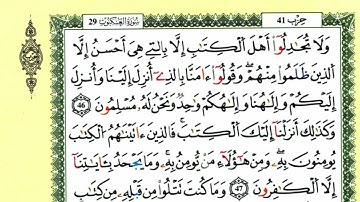 سُورَةُ الْعَنكَبُوتِ 29
حزب 41
وَلَا تُجَٰدِلُوٓا۟ أَهْلَ ٱلْكِتَٰبِ إِلَّا بِٱلَّتِے هِىَ أَحْسَنُ إِلَّا
ٱلذِينَ ظَلَمُوا۟ مِنْهُمْ وَقُولُوٓا۟ ءَامَنَّا بِالذِےٓ أُنزِلَ إِلَيْنَا وَأُنزِلَ
إِلَيْكُمْ وَإِلَٰهُنَا وَإِلَٰهُكُمْ وَٰحِدٌ وَنَحْنُ لَهُۥ مُسْلِمُونَ 46
وَكَذَٰلِكَ أَنزَلْنَآ إِلَيْكَ ٱلْكِتَٰبَ فَالذِينَ ءَاتَيْنَٰهُمُ ٱلْكِتَٰبَ
يُومِنُونَ بِهِۦ وَمِنْ هَٰٓؤُلَآءِ مَنْ يُّومِنُ بِهِۦ وَمَا يَجْحَدُ بِـَٔايَٰتِنَآ
إِلَّا ٱلْكَٰفِرُونَ 47 وَمَا كُنتَ تَتْلُوا۟ مِن قَبْلِهِۦ مِن كِتَٰبٍ